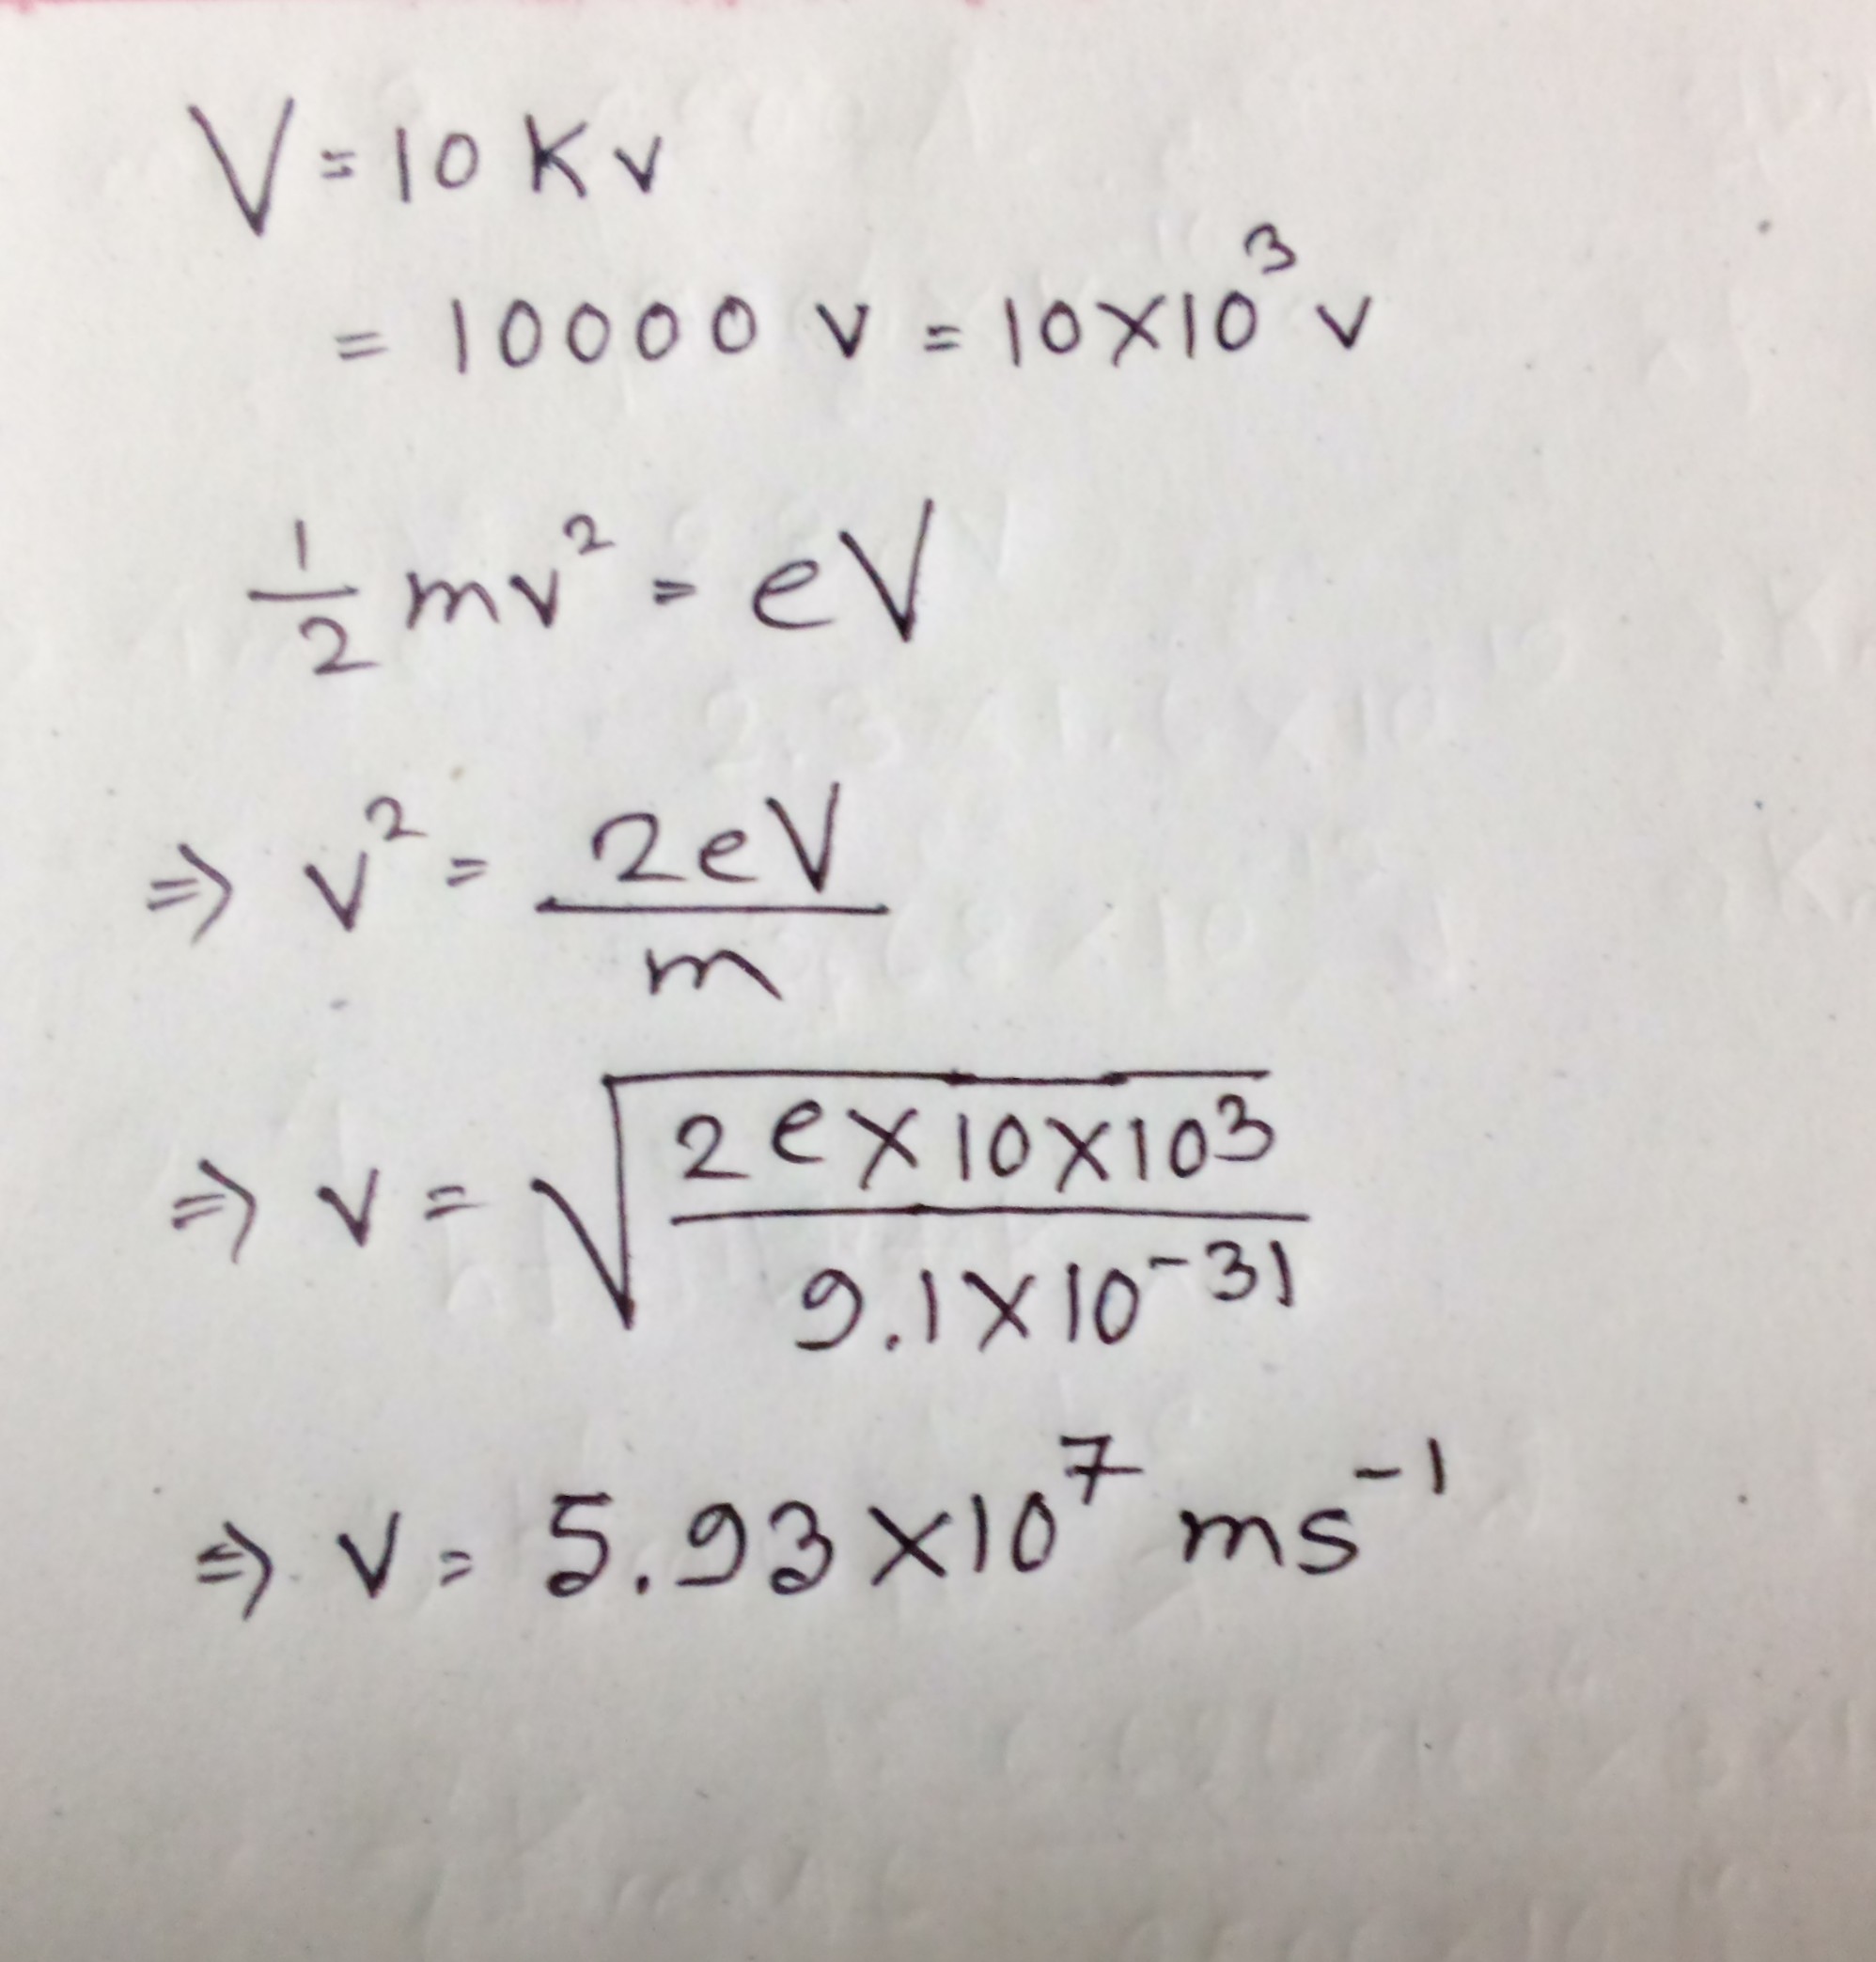 V = 10 Kv
= 10000 v = 10×10³ v
½ mv² = eV
⇒ v² = 2eV / m
⇒ v = √(2e×10×10³ / 9.1×10⁻³¹)
⇒ v = 5.93×10⁷ ms⁻¹